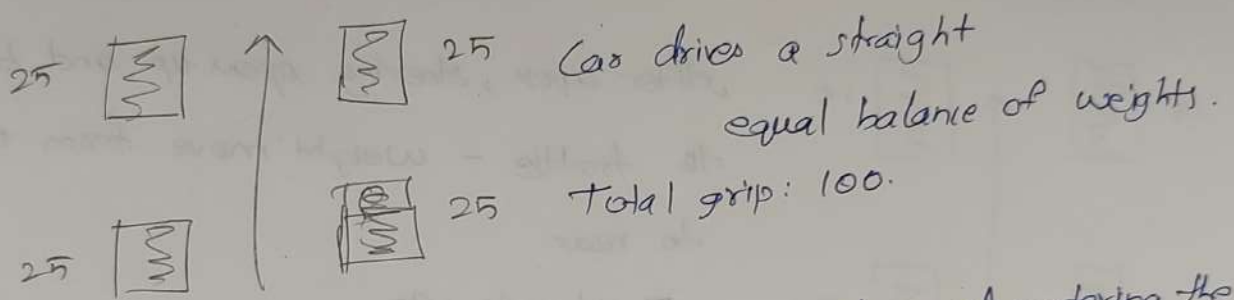 25 25 Car drives a straight
equal balance of weights.
25 Total grip: 100.
25
during the